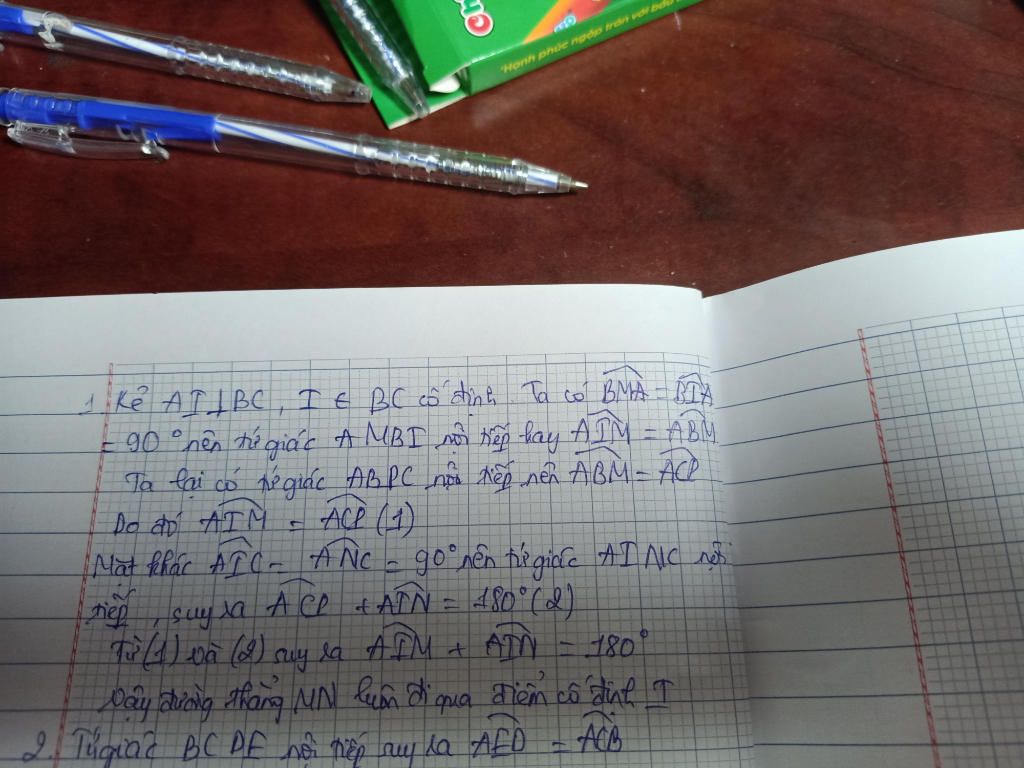 Hạnh phúc ngập tràn với bầu
1. Kẻ AI⊥BC, I ∈ BC cố định. Ta có \widehat{BMA} = \widehat{BIA}
= 90° nên tứ giác AMBI nội tiếp hay \widehat{AIM} = \widehat{ABM}
Ta lại có tứ giác ABPC nội tiếp nên \widehat{ABM} = \widehat{ACP}
Do đó \widehat{AIM} = \widehat{ACP} (1)
Mặt khác \widehat{AIC} = \widehat{ANC} = 90° nên tứ giác AINC nội
tiếp, suy ra \widehat{ACP} + \widehat{AIN} = 180° (2)
Từ (1) và (2) suy ra \widehat{AIM} + \widehat{AIN} = 180°
Vậy đường thẳng MN luôn đi qua điểm cố định I
2. Tứ giác BCDE nội tiếp suy ra \widehat{AED} = \widehat{ACB}